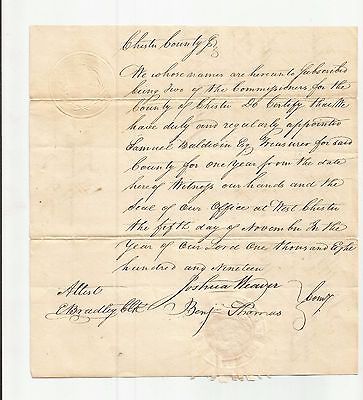 Chester County Ss
We whose names are hereunto Subscribed
being Two of the Commissioners for the
County of Chester Do Certify that We
have duly and regularly appointed
Samuel Baldwin Esq Treasurer for said
County for one Year from the date
hereof Witness our hands and the
Seal of Our Office at West Chester
the fifth day of November In the
Year of Our Lord One thousand Eight
hundred and Nineteen
Joshua Weaver
Attest
Benj Thomas
Bradley Clk